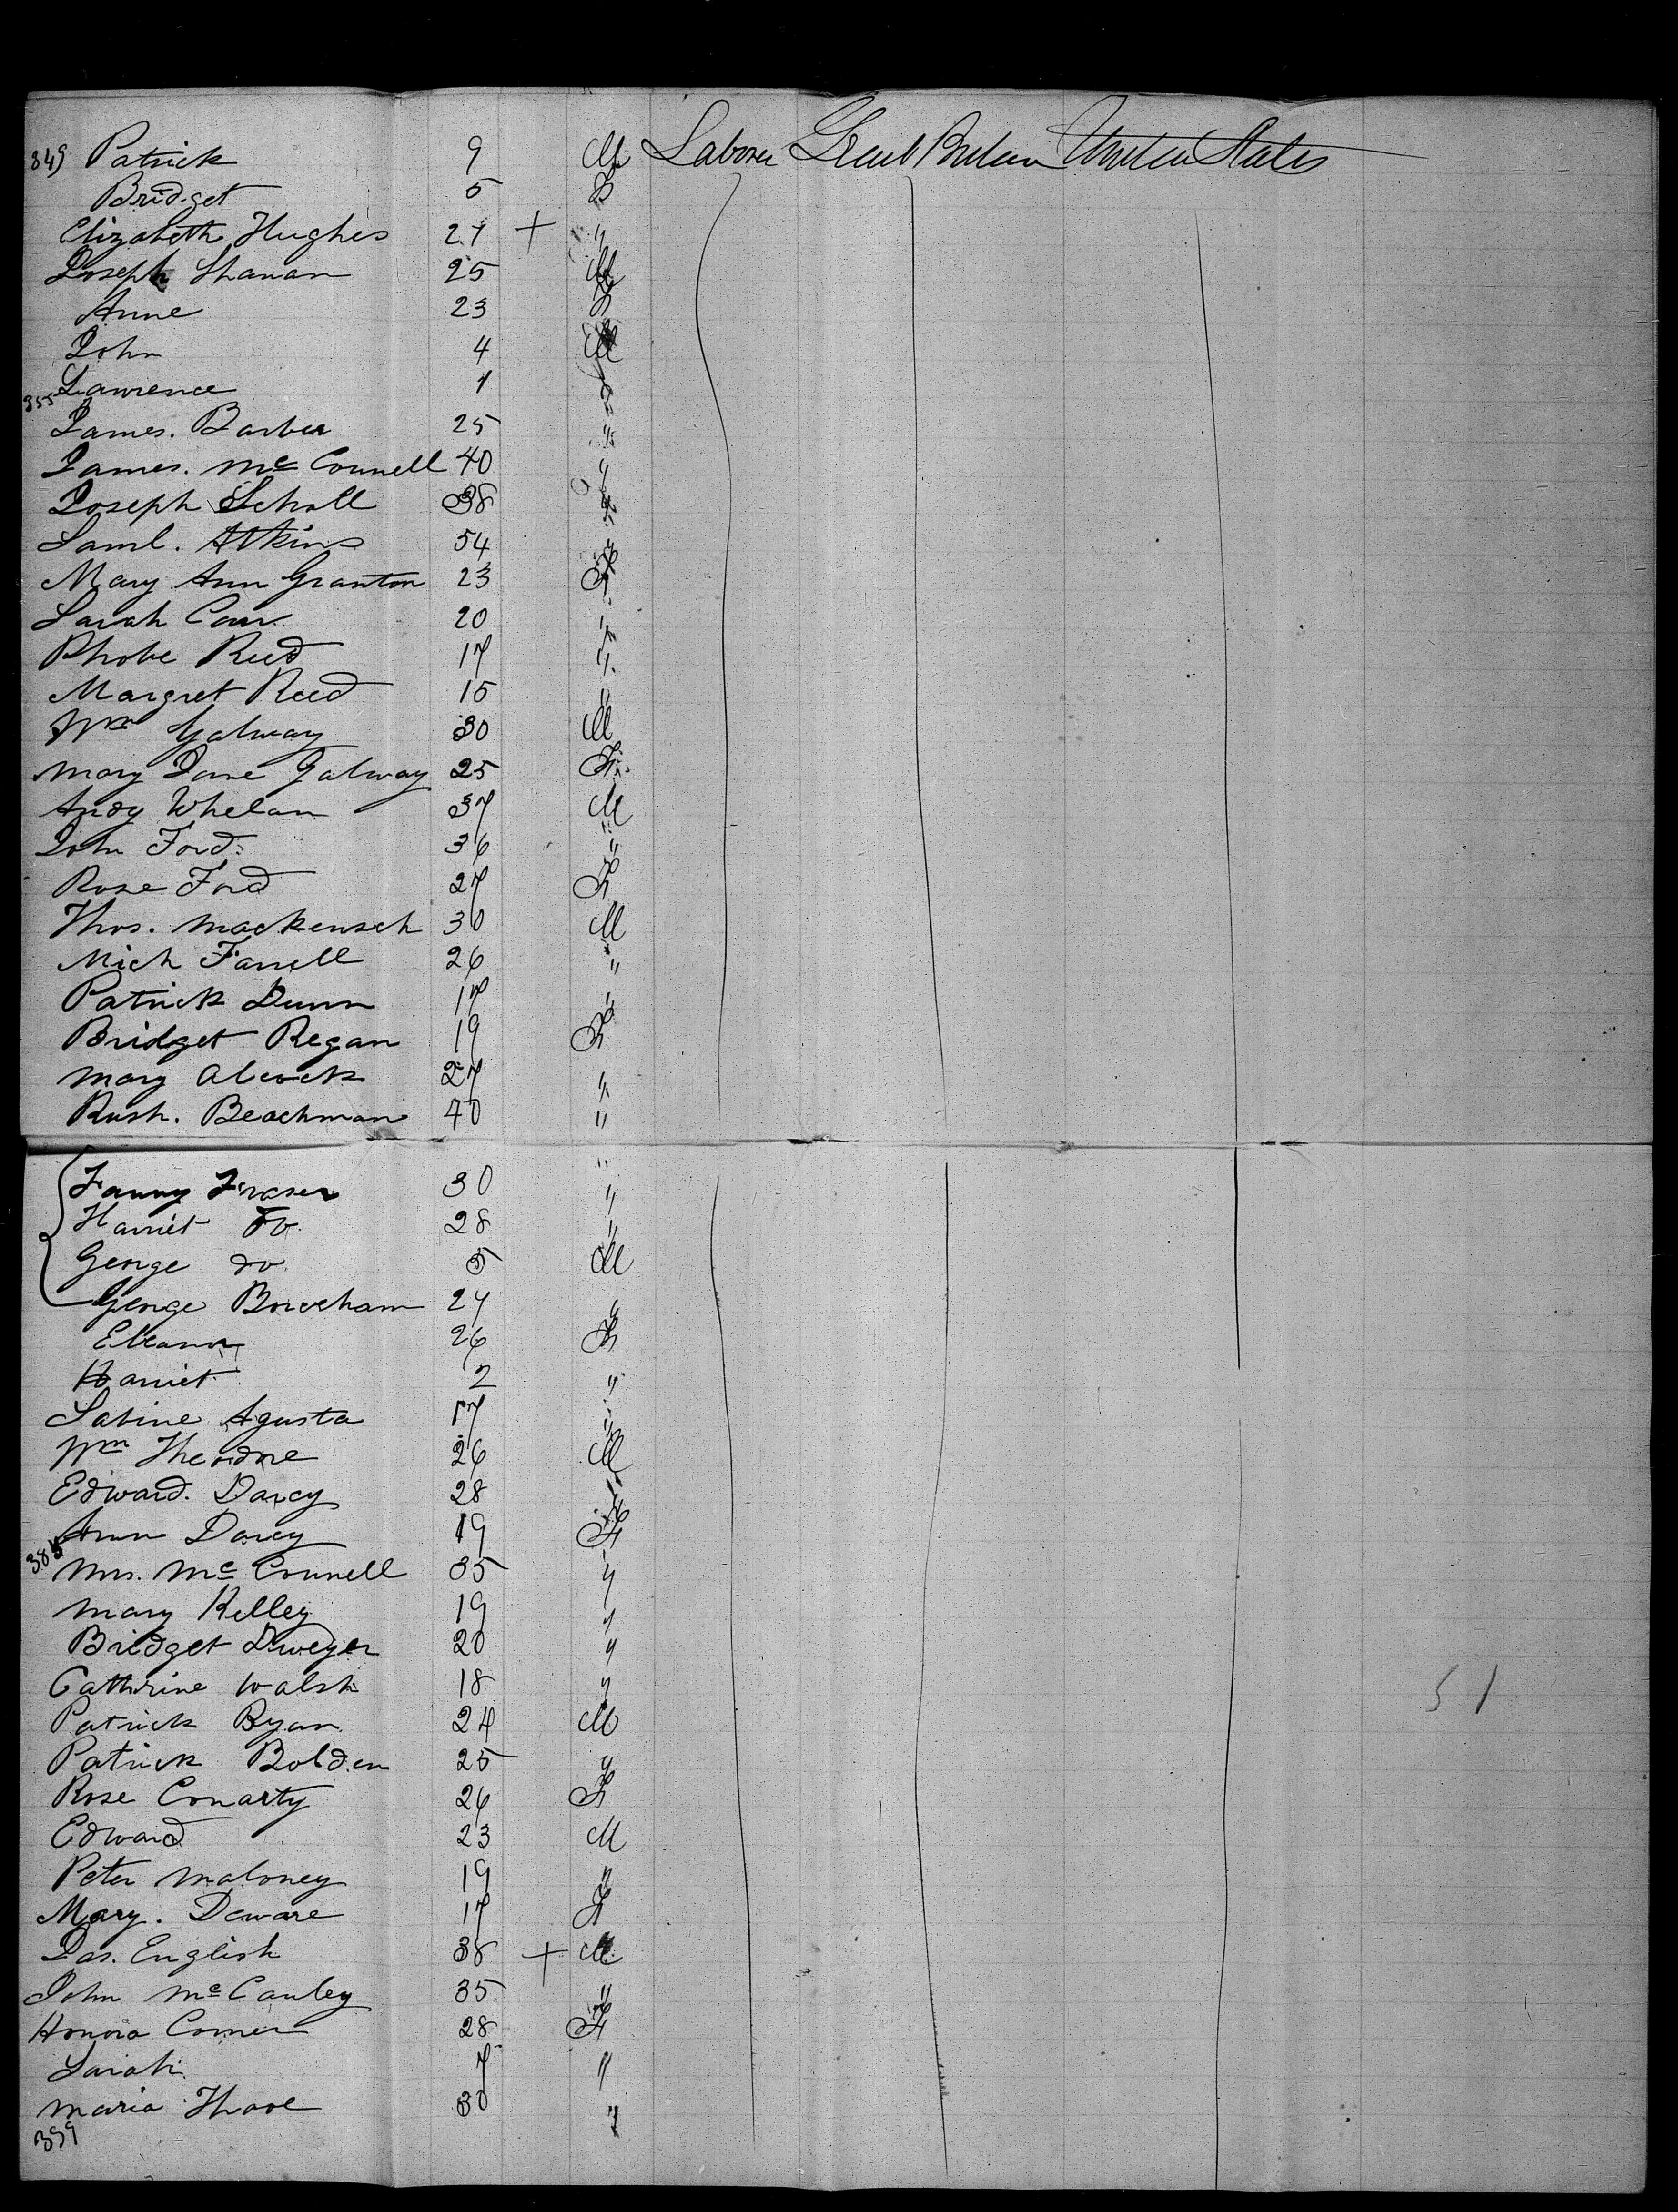 349 Patrick 9 M Laborer Great Britain United States
Bridget 5 F
Elizabeth Hughes 27 + "
Joseph Shanan 25 M
Anne 23 F
John 4 M
355 Lawrence 1 "
James. Barber 25 "
James. McConnell 40 "
Joseph Scholl 38 "
Saml. Atkins 54 "
Mary Ann Granton 23 F
Sarah Carr 20 "
Phobe Reed 17 "
Margret Reed 15 "
Wm Galway 30 M
Mary Jane Galway 25 F
Andy Whelan 37 M
John Ford 36 "
Rose Ford 27 F
Thos. Mackensch 30 M
Mich Farrell 26 "
Patrick Dunn 17 "
Bridget Regan 19 F
Mary Alcock 27 "
Rush. Beachman 40 "
Fanny Fraser 30 "
Harriet Do. 28 "
George do. 5 M
George Boweham 27 "
Eleanor 26 F
Harriet 2 "
Sabine Agusta 17 "
Wm Theodore 26 M
Edward. Darcy 28 "
Ann Darcy 19 F
385 Mrs. McConnell 35 "
Mary Kelley 19 "
Bridget Dweyer 20 "
Cathrine Walsh 18 "
51
Patrick Ryan 24 M
Patrick Bolden 25 "
Rose Conarty 26 F
Edward 23 M
Peter Maloney 19 "
Mary. Deware 17 F
Jas. English 38 + M
John McCauley 35 "
Honora Comer 28 F
Sarah 7 "
Maria Thove 30 "
399